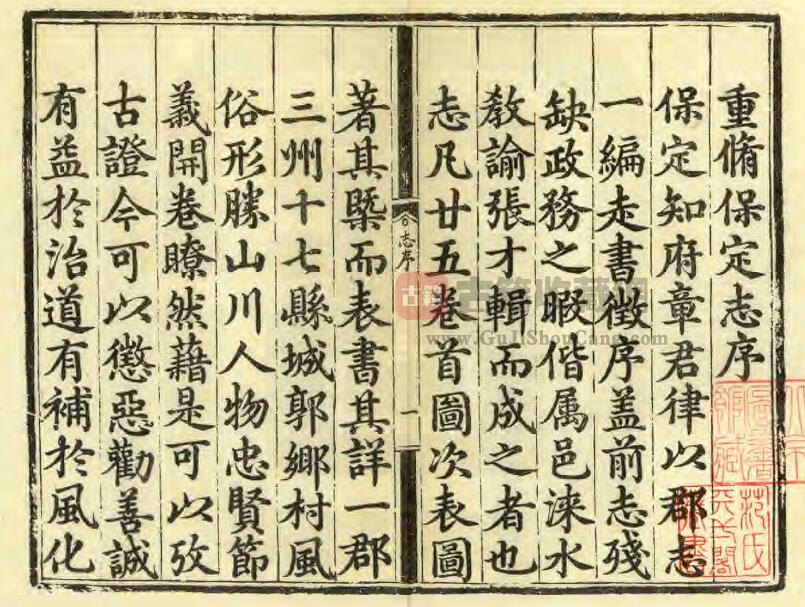 重脩保定志序
保定知府章君律以郡志
一編走書徵序盖前志殘
缺政務之暇偕属邑淶水
教諭張才輯而成之者也
志凡廿五卷首圖次表圖
志序
一
著其槩而表書其詳一郡
三州十七縣城郭鄉村風
俗形勝山川人物忠賢節
義開卷瞭然藉是可以攷
古證今可以懲惡勸善誠
有益於治道有補於風化
古籍
古籍收藏网
www.GuJiShouCang.com
范氏